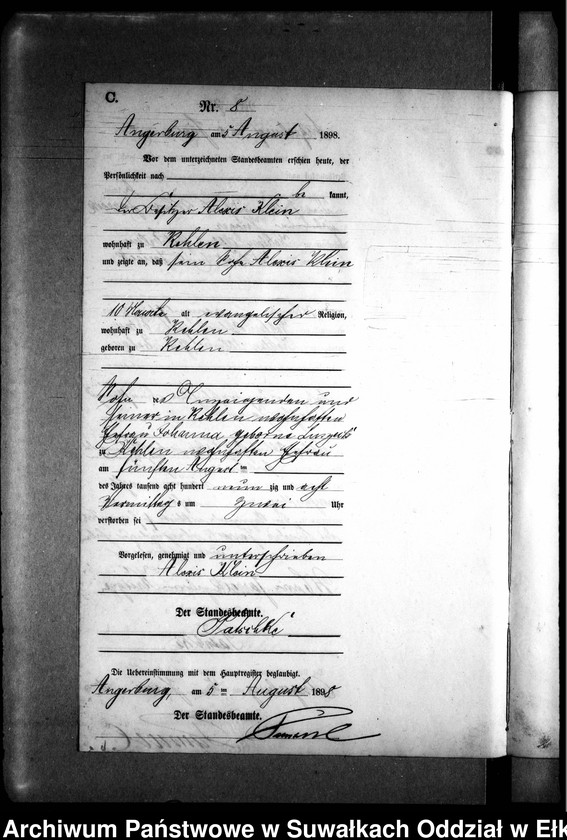 C.
Nr. 8
Angerburg am 5 August 1898.
Vor dem unterzeichneten Standesbeamten erschien heute, der
Persönlichkeit nach
be kannt,
der Besitzer Alexis Klein
wohnhaft zu Kehlen
und zeigte an, daß sein Alexis Klein
10 alt evangelischer Religion,
wohnhaft zu Kehlen
geboren zu Kehlen
Sohn des Anzeigenden und
seiner in Kehlen wohnhaften
Ehefrau Johanna, geborne
zu Kehlen wohnhaften Ehefrau
am fünften August
des Jahres tausend acht hundert neun zig und acht
Vormittag s um zwei Uhr
verstorben sei
Vorgelesen, genehmigt und unterschrieben
Alexis Klein
Der Standesbeamte.
Die Uebereinstimmung mit dem Hauptregister beglaubigt.
Angerburg, am 5 ten August 1898
Der Standesbeamte.
Archiwum Państwowe w Suwałkach Oddział w Ełk